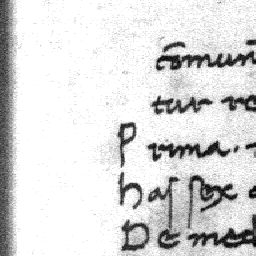 cōmun
tur re
Prima.
Has sex
De med